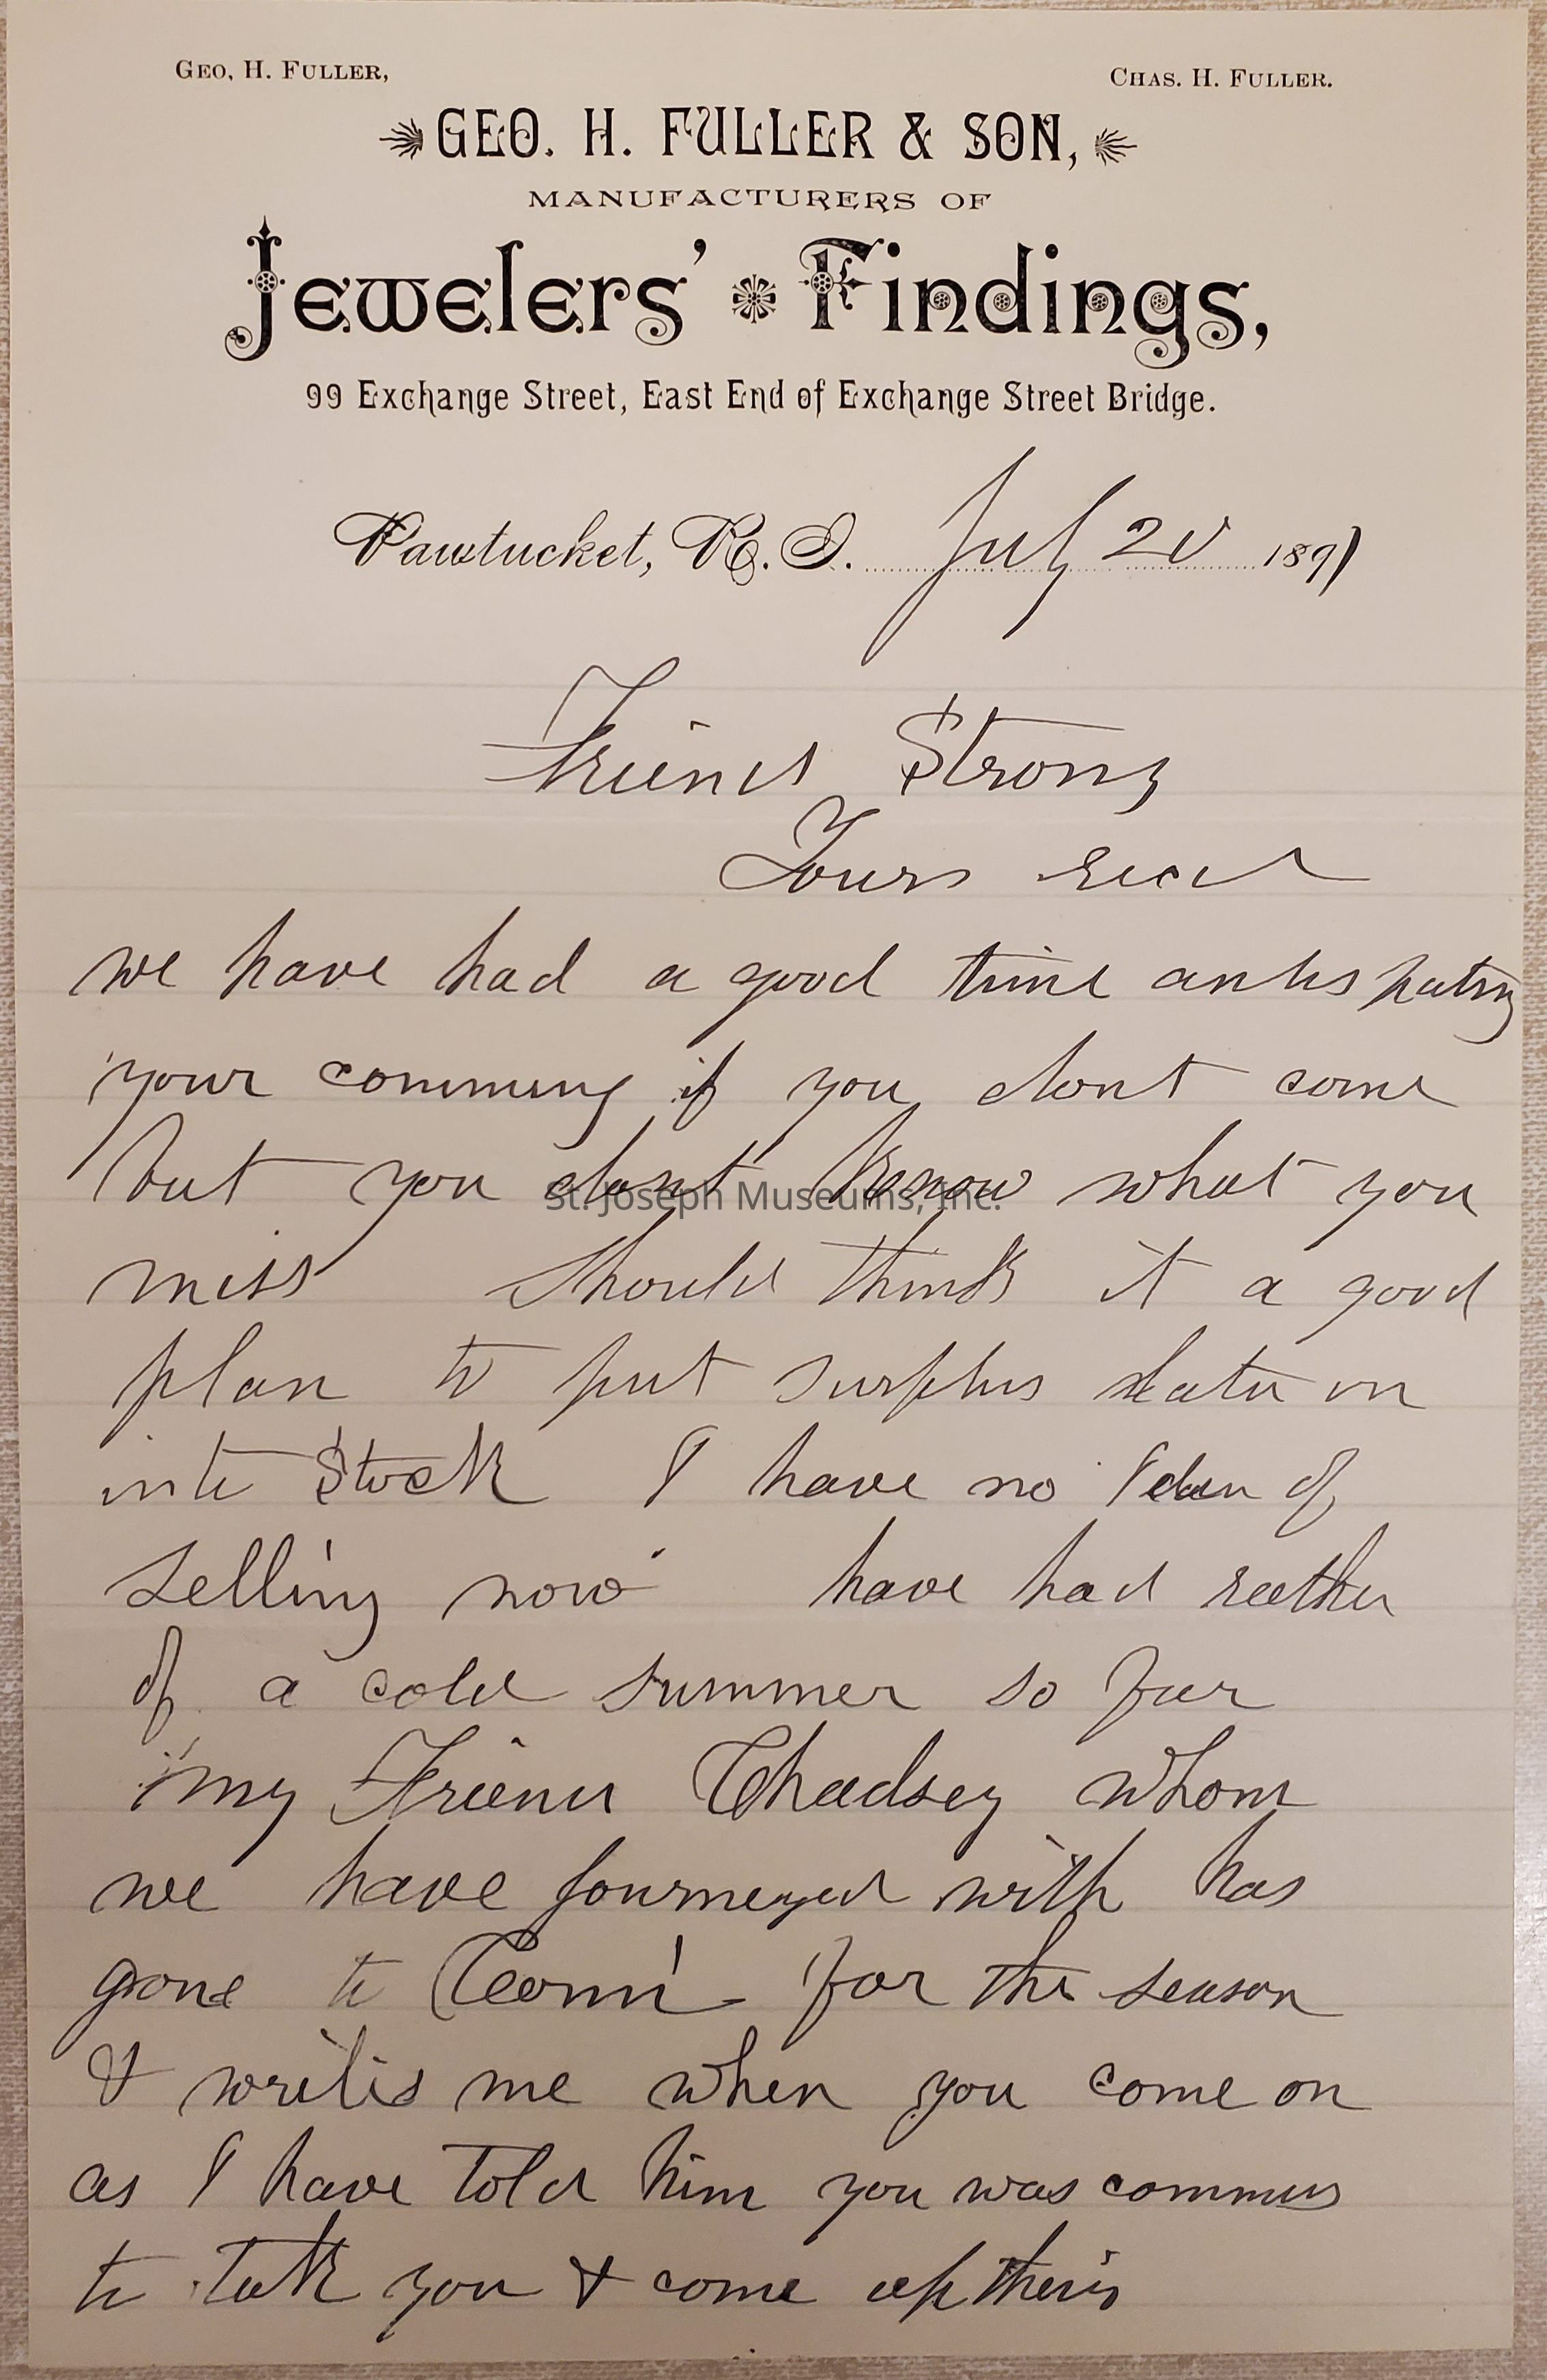 GEO. H. FULLER, CHAS. H. FULLER.
GEO. H. FULLER & SON,
MANUFACTURERS OF
Jewelers' Findings,
99 Exchange Street, East End of Exchange Street Bridge.
Pawtucket, R. I. July 20 1891
Friend Strong
Yours recd
we have had a good time antispating
your comming if you dont come
but you dont know what you
St. Joseph Museums, Inc.
miss should think it a good
plan to put surplus on
into Stock I have no Idea of
selling now have had rather
of a cold summer so far
my Friend Chadsey whom
we have journeyed with has
gone to Conn for the season
& writes me when you come on
as I have told him you was comming
to take you & come up their